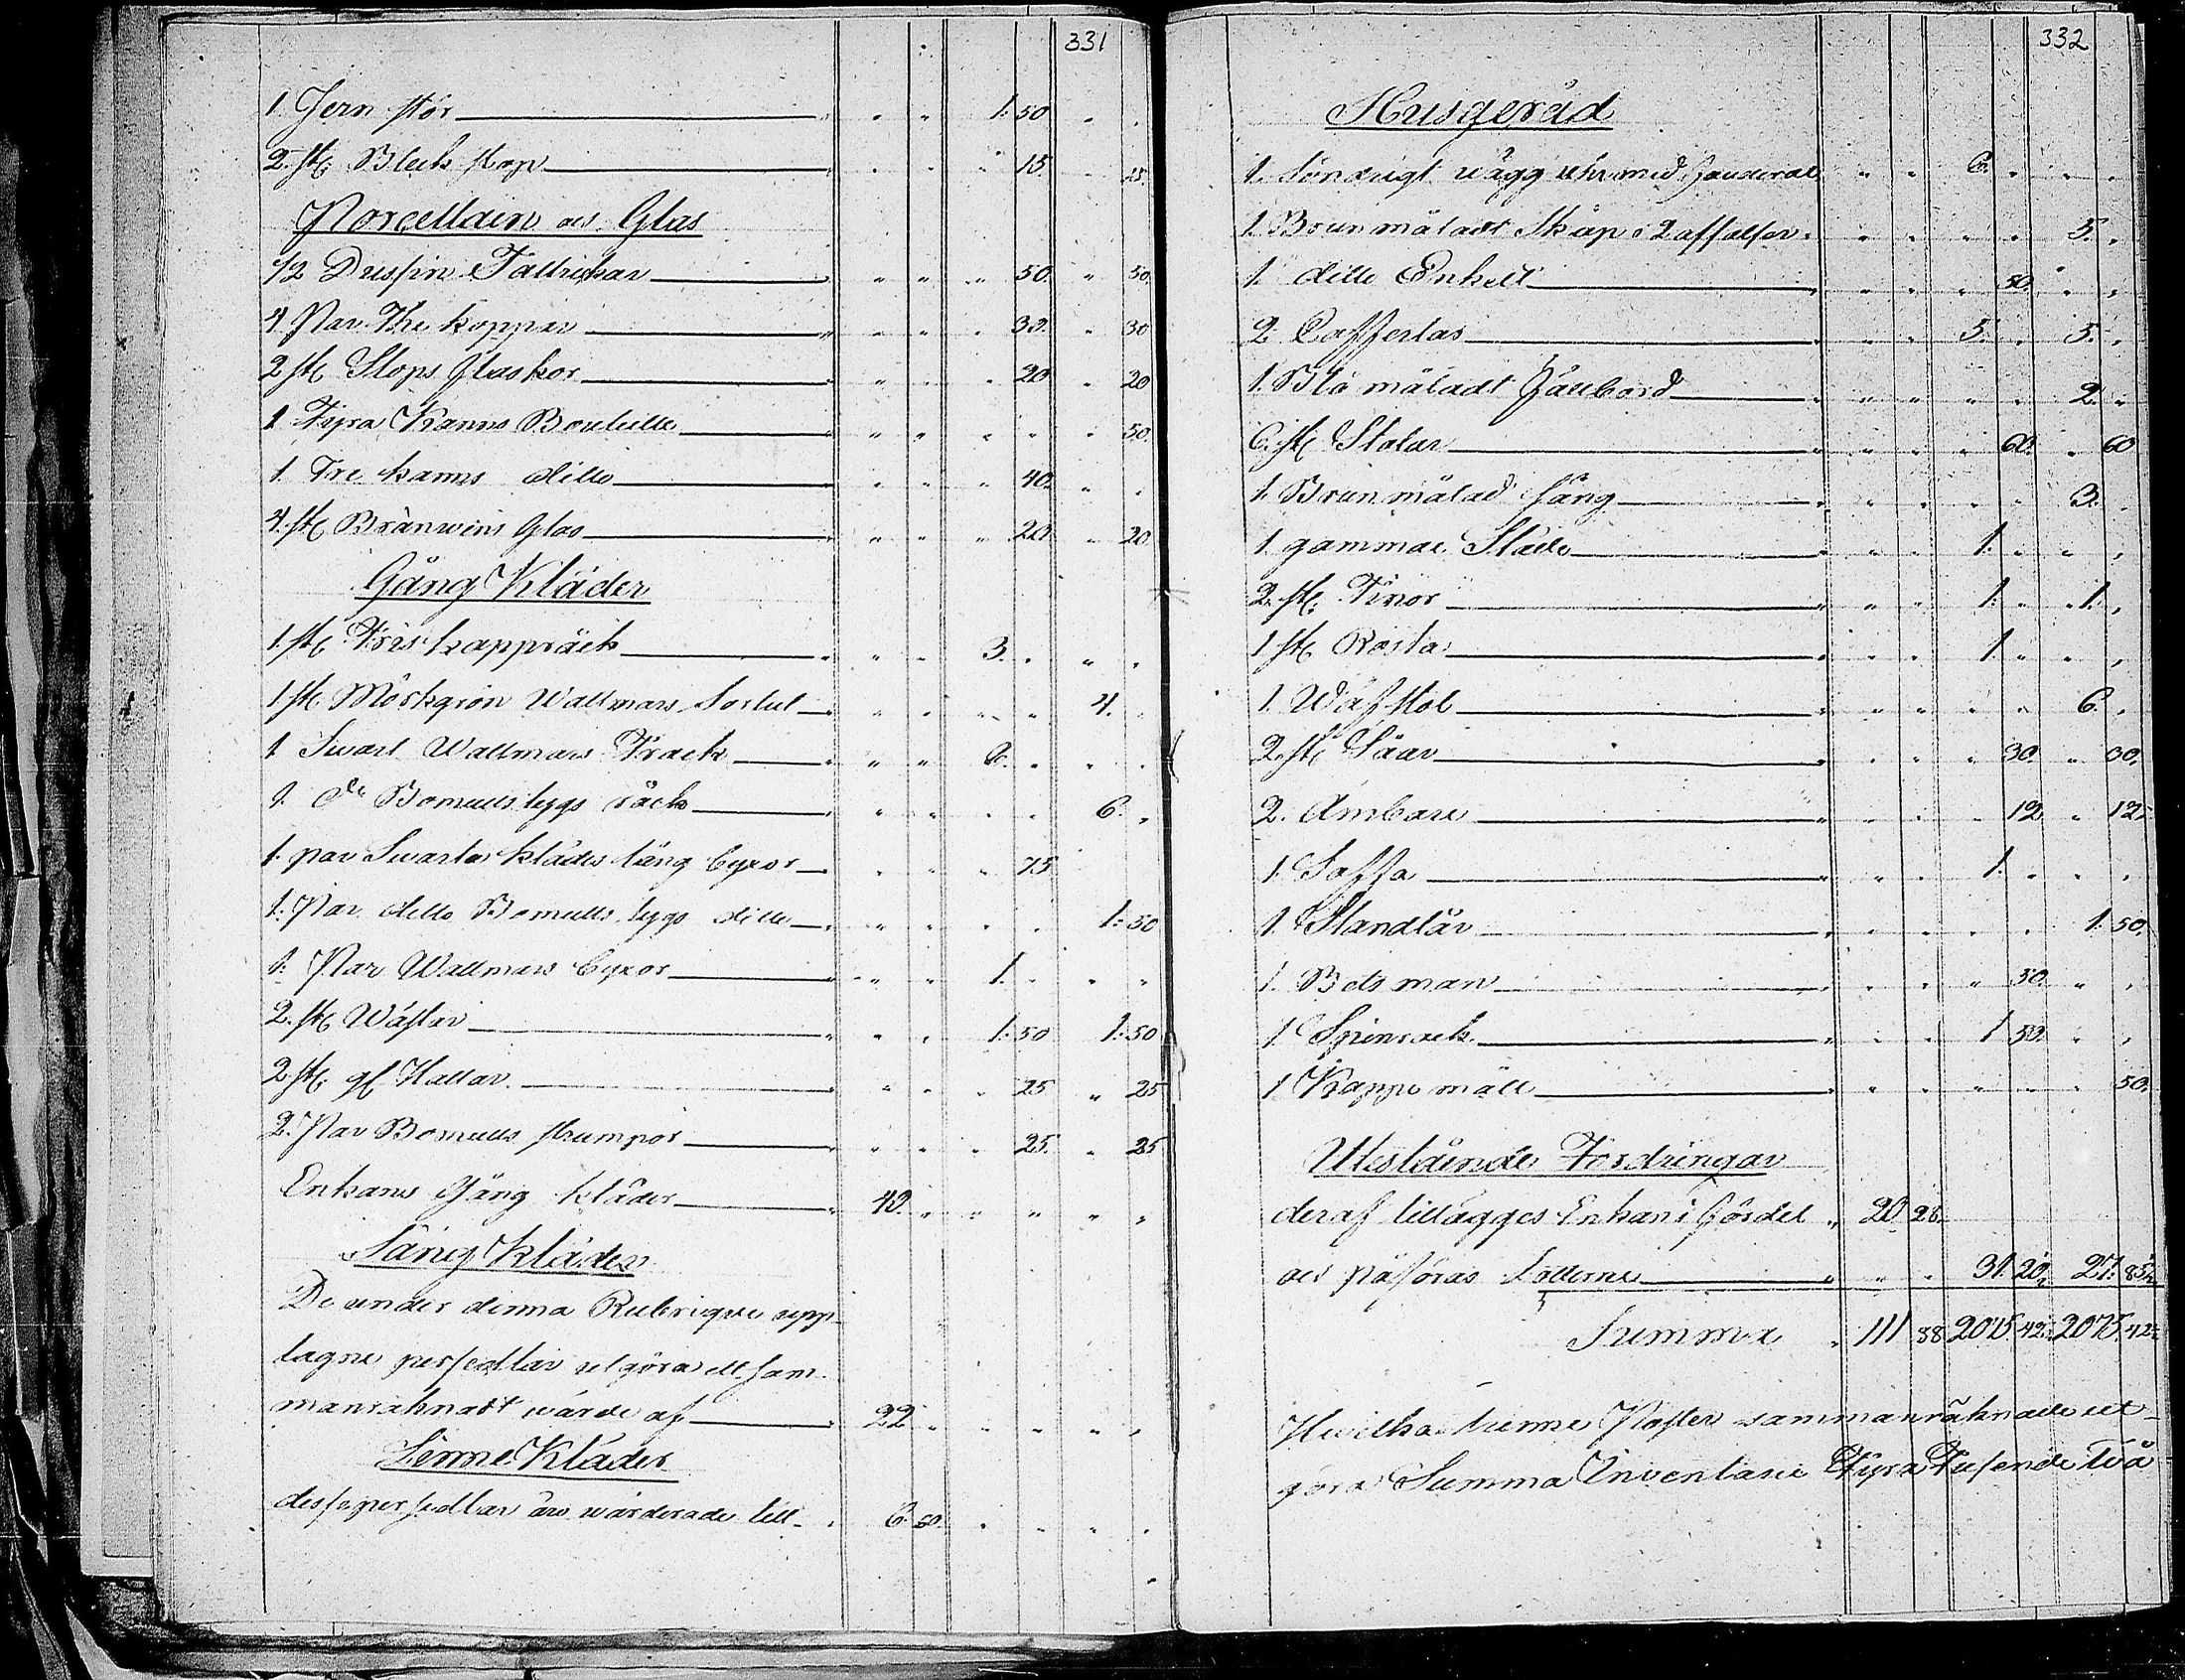 331
1. Jern stör " " 1: 50 " "
2. st. Bleck stop " " " 15. " 15.
Porcellain och Glas
1/2 Dussin Tallrickar " " " 50. " 50.
4 Par The koppar " " " 30. " 30
2 st. Stops flaskor " " " 20 " 20
1 Fyra Kanns Bouteille " " " " " 50.
1. Tre kanns ditto " " " 40. " "
4. st. Bränwins Glas " " " 20 " 20
Gång Kläder
1. st. Fris kappräck " " 3. " " "
1 st. Mörkgrön Wallmars Sortut " " " " 4. "
1 Swart Wallmars Frack " " 2. " " "
1. do Bomullstygs råck " " " " 6. "
1. par Swarta klädes lång byxor " " " 75
1. Par ditto Bomulls tygs ditto " " " " 1: 50
1. Par Wallmars byxor " " 1. " " "
2. st. Wästar " " 1: 50 1: 50
2 st. gl. Hattar " " " 25 " 25
2. Par Bomulls strumpor " " " 25. " 25
Enkans Gång kläder 40. " " " " "
Säng Kläder
De under denna Rubrique upp-
tagne persedlar utgöra ett sam-
manräknadt wärde af 22 " " " " "
Linne Kläder
desse persedlar äro wärderade till 6. 50. " " " "
332
Husgeråd
1. Söndrigt wägg uhr med fouderal " " 6. " " "
1. Brun måladt Skåp i 2 afsatser " " " " 5. "
1. ditto Enkelt " " " 50. " "
2 Cafferlas " " 5. " 5. "
1. Blå måladt Fällbord " " " " 2. "
6. st. Stolar " " " 60. " 60
1. Brun målad säng " " " " 3. "
1 gammal Släde " " 1. " " "
2. st. Tinor " " 1. " 1. "
1 st. Kista " " 1. " " "
1. Wäf stol " " " " 6. "
2. st. Såar " " " 30. " 30.
2. Ämbare " " " 12 " 12.
1. Soffa " " 1. " " "
1. Standtår " " " " 1. 50.
1. Betsman " " " 50. " "
1 Spinrock " " 1 50. " "
1 Kappe mått " " " " " 50.
Utestående Fordringar
deraf tillägges Enkan i Fördel " 20 28.
och påföras Lotterne " " 31. 20. 27. 85½
Summa " 111 88 2015. 42. 2015. 42.
Hvilka trenne Poster sammanräknade ut-
göra Summa Inventarie Fyra Tusende Två